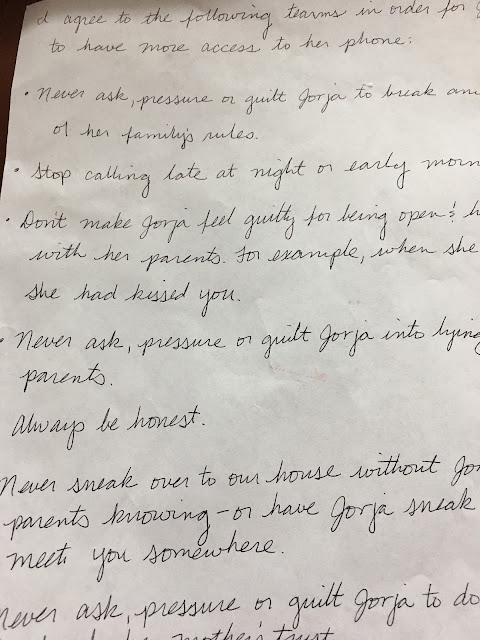 I agree to the following tearms in order for J
to have more access to her phone:
• Never ask, pressure or guilt Jorja to break any
of her family's rules.
• Stop calling late at night or early morn
• Don't make Jorja feel guilty for being open & h
with her parents. For example, when she
she had kissed you.
• Never ask, pressure or guilt Jorja into lying
parents.
Always be honest.
Never sneak over to our house without Jor
parents knowing - or have Jorja sneak
meet you somewhere.
Never ask, pressure or guilt Jorja to do
mother's trust